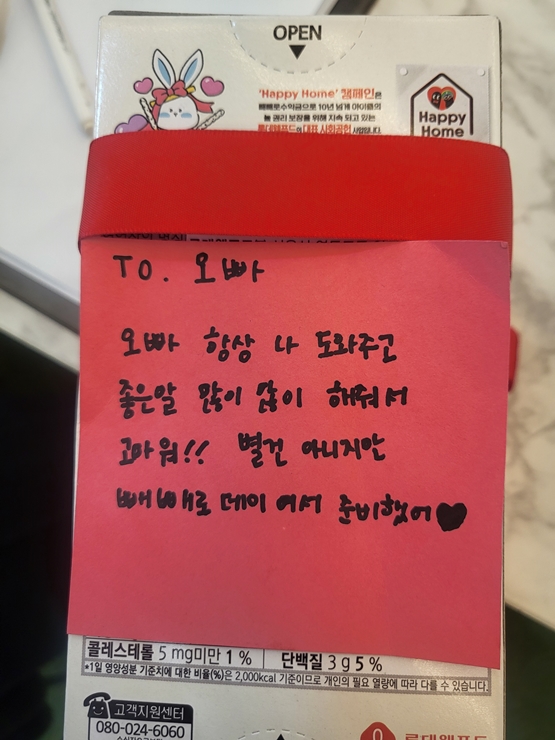 OPEN
'Happy Home' 캠페인은
빼빼로수익금으로 10년 넘게 아이들의
놀 권리 보장을 위해 지속 되고 있는
롯데웰푸드의 대표 사회공헌 사업입니다.
Happy
Home
TO. 오빠
오빠 항상 나 도와주고
좋은말 많이 많이 해줘서
고마워!! 별건 아니지만
빼빼로 데이 여서 준비했어♥
콜레스테롤 5 mg미만 1 % 단백질 3 g 5 %
*1일 영양성분 기준치에 대한 비율(%)은 2,000kcal 기준이므로 개인의 필요 열량에 따라 다를 수 있습니다.
고객지원센터
080-024-6060
롯데웰푸드